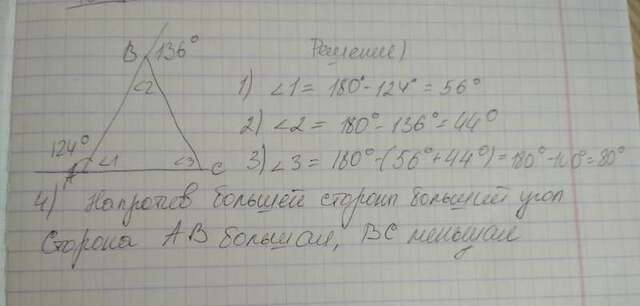 B 136°
Решение)
∠2
1) ∠1 = 180° - 124° = 56°
2) ∠2 = 180° - 136° = 44°
124°
∠1 ∠3 C
A
3) ∠3 = 180° - (56° + 44°) = 180° - 100° = 80°
4) Напротив большей стороны больший угол
Сторона AB большая, BC меньшая